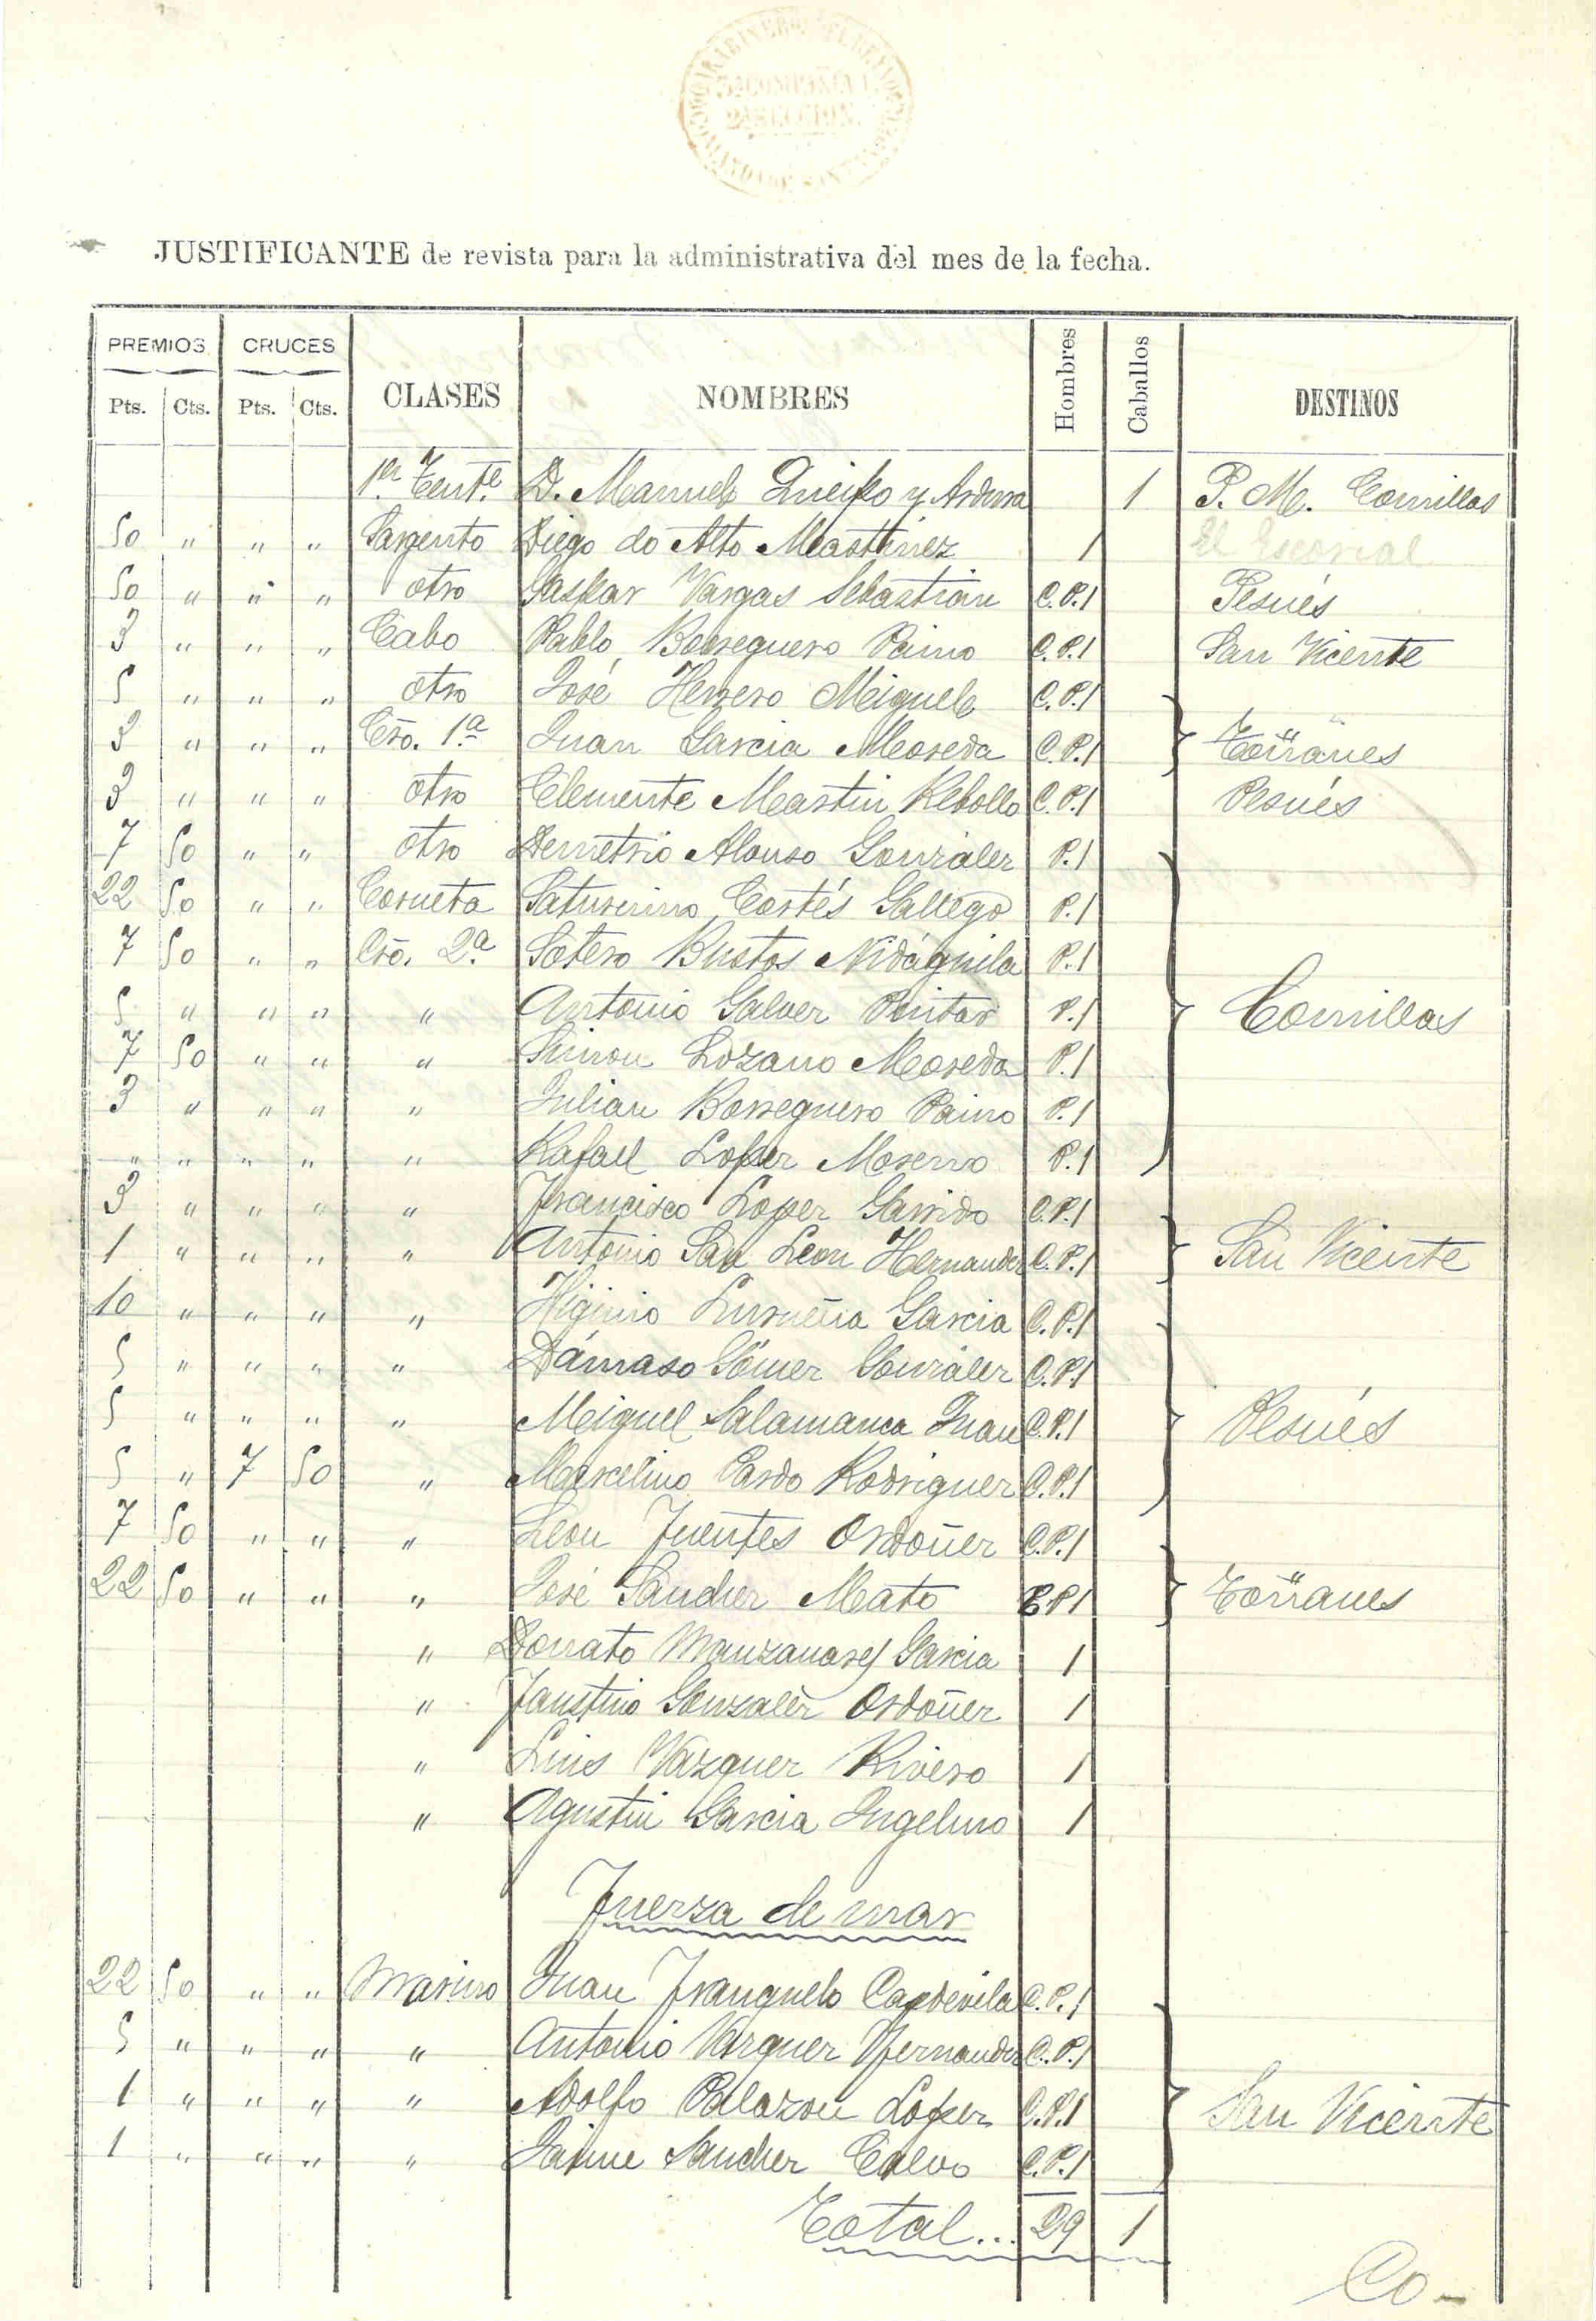 5ª COMPAÑIA
2ª SECCION.
JUSTIFICANTE de revista para la administrativa del mes de la fecha.
PREMIOS CRUCES CLASES NOMBRES Hombres Caballos DESTINOS
Pts. Cts. Pts. Cts.
1er Tente. D. Manuel Queipo y 1 P. M. Comillas
50 " " " Sargento Diego do Alto Martinez 1 El Escorial
50 " " " otro Gaspar Vargas Sebastian C.P.1 Pesués
3 " " " Cabo Pablo Borreguero Paino C.P.1 San Vicente
5 " " " otro José Herrero Miguel C.P.1
3 " " " Cro. 1.ª Juan Garcia Moreda C.P.1 Toñanes
3 " " " otro Clemente Martin Rebollo C.P.1 Pesués
7 50 " " otro Demetrio Alonso Gonzalez P.1
22 50 " " Corneta Saturnino Cortés Gallego P.1
7 50 " " Cro. 2.ª Sotero Bustos Nidáguila P.1
5 " " " " Antonio Galvez Pintor P.1 Comillas
7 50 " " " Simon Lozano Moreda P.1
3 " " " " Julian Borreguero Paino P.1
" " " " " Rafael Lopez Moreno P.1
3 " " " " Francisco Lopez Garrido C.P.1
1 " " " " Antonio San Leon Hernandez C.P.1 San Vicente
10 " " " " Higinio Lurueña Garcia C.P.1
5 " " " " Dámaso Gómez Gonzàlez C.P.1
5 " " " " Miguel Salamanca Juan C.P.1 Pesués
5 " 7 50 " Marcelino Pardo Rodriguez C.P.1
7 50 " " " Leon Fuentes Ordoñez C.P.1
22 50 " " " José Sanchez Mato C.P.1 Toñanes
" Donato Manzanares Garcia 1
" Faustino Gonzalez Ordoñez 1
" Luis Vazquez Rivero 1
" Agustin Garcia Ingelmo 1
Fuerza de mar
22 50 " " Marino Juan Franquelo Capdevila C.P.1
5 " " " " Antonio Vazquez Fernandez C.P.1
1 " " " " Adolfo Palazon Lopez C.P.1 San Vicente
1 " " " " Jaime Sanchez Calvo C.P.1
Total... 29 1
Co-